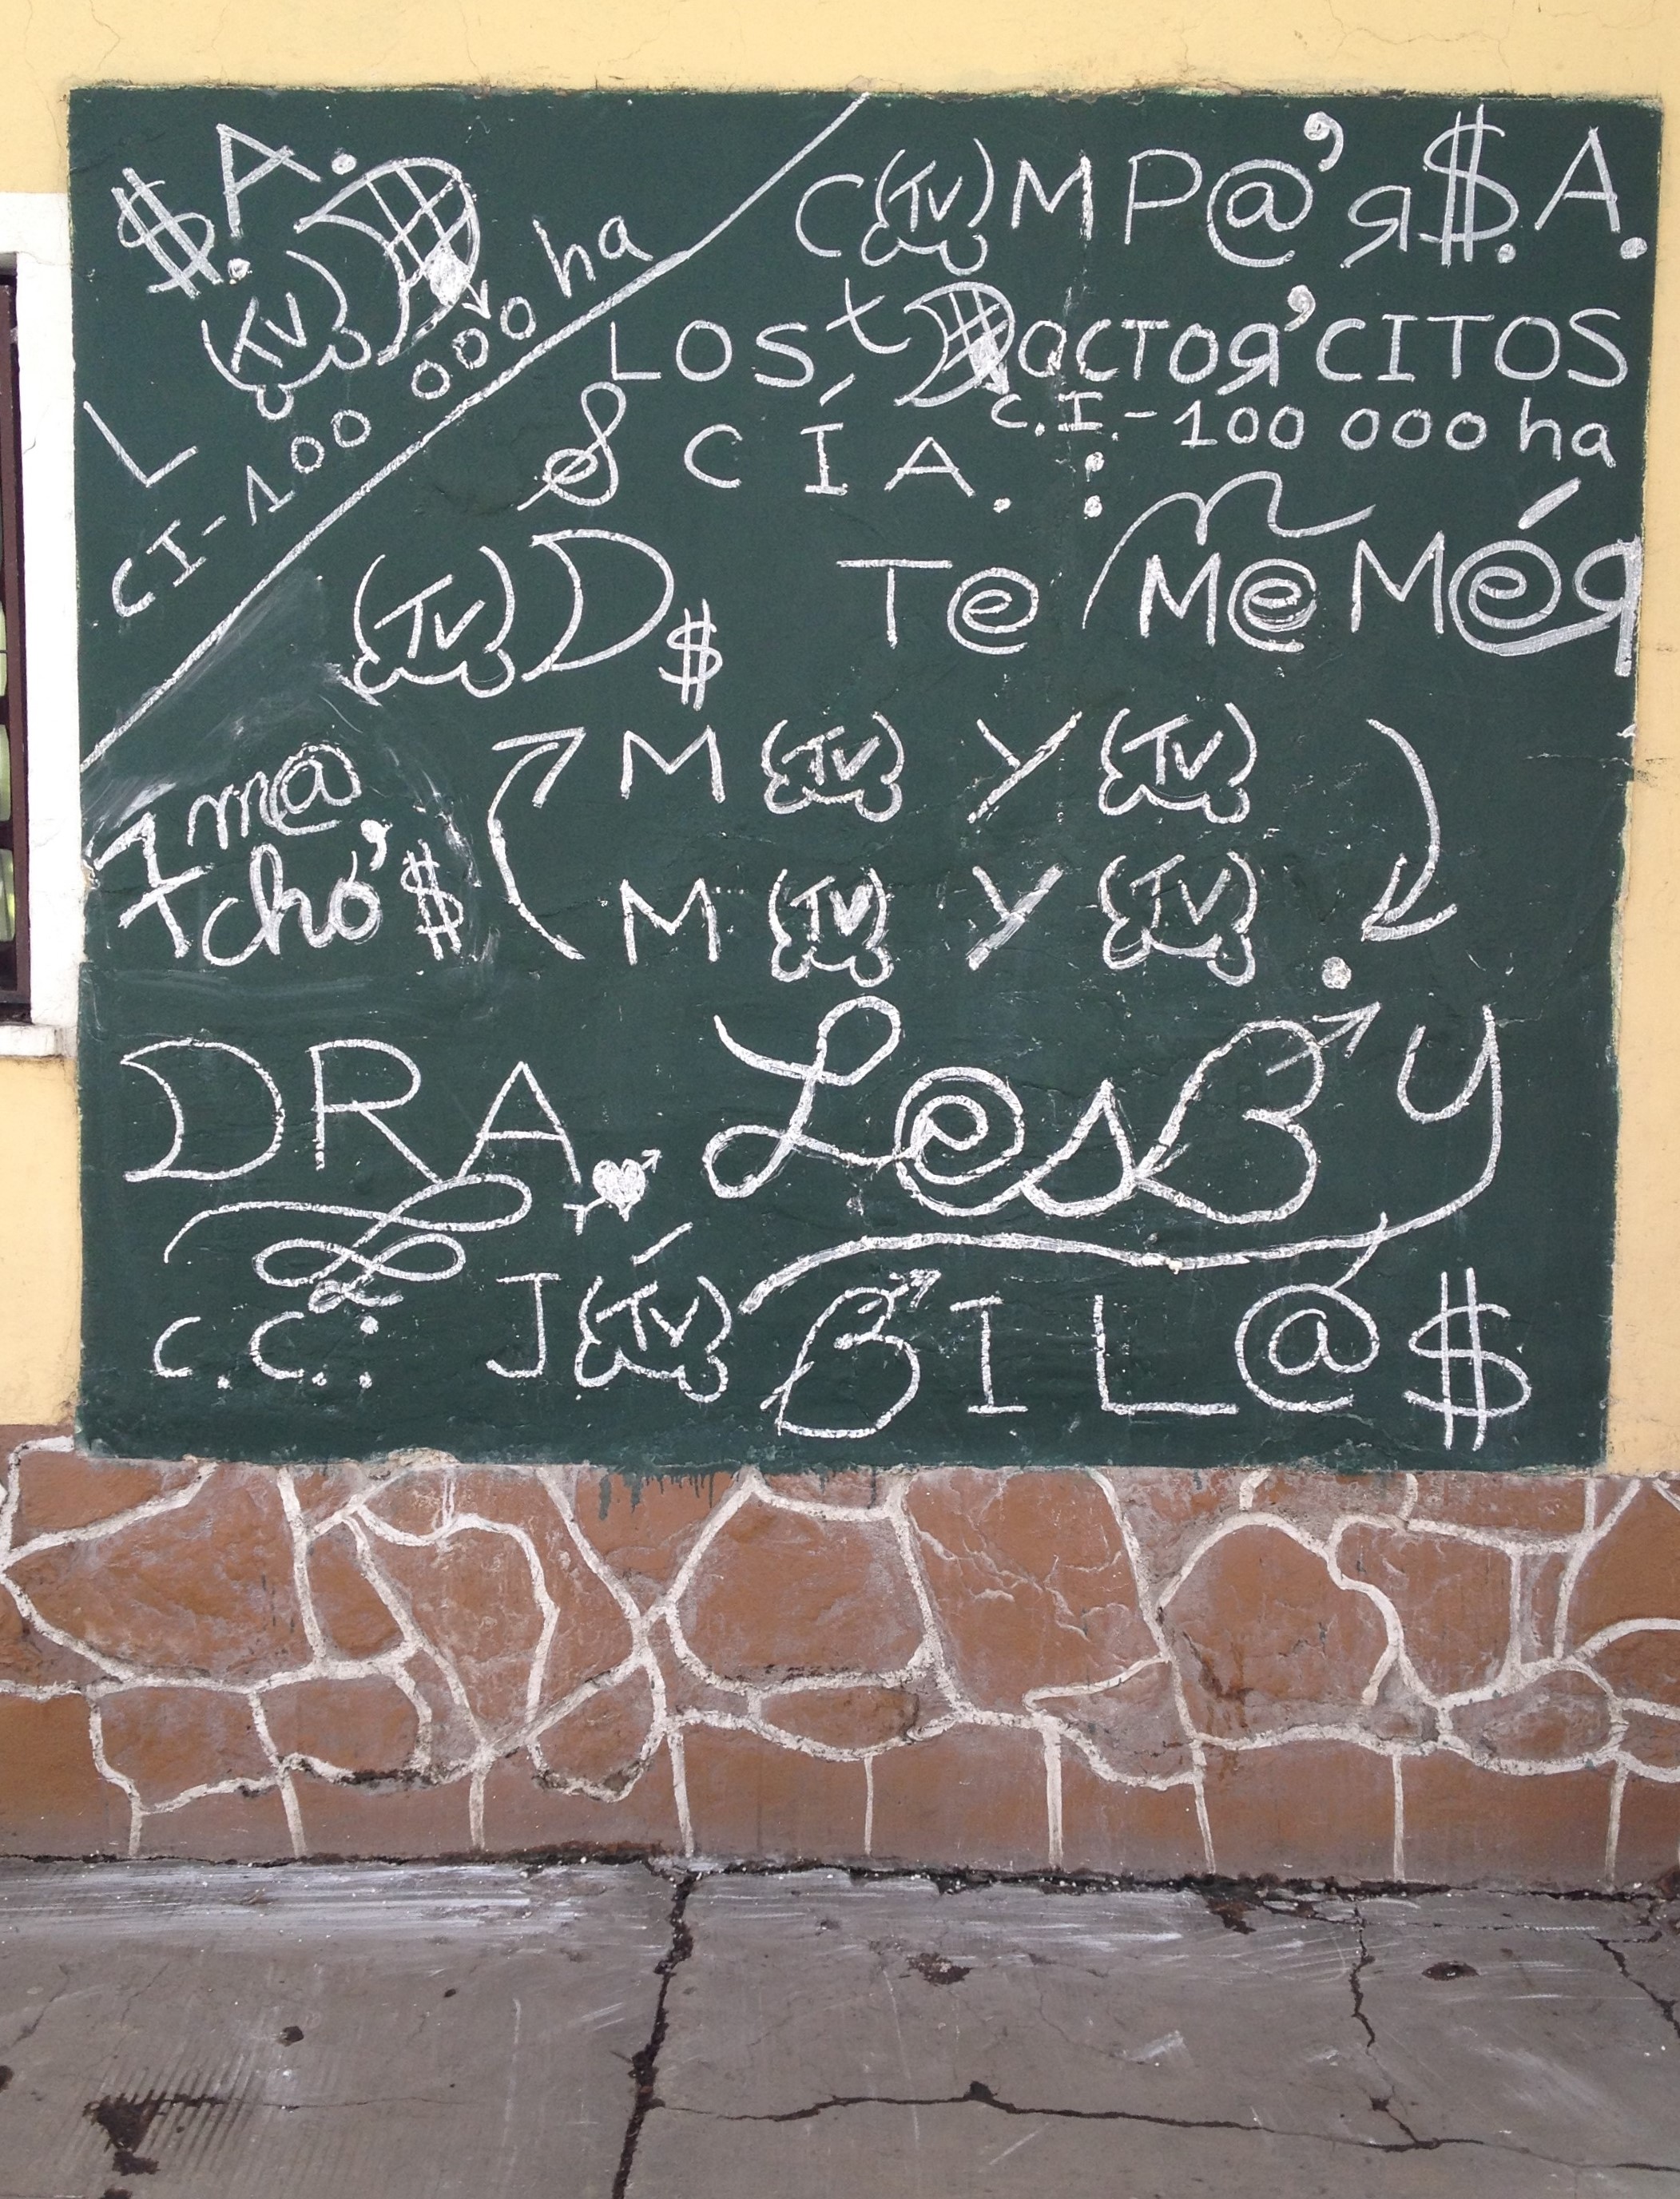 $.A.
L (TV) D
CI-100 000 ha
C(TV)MP@'Я$.A.
LOS t DOCTOЯ'CITOS
C.I.-100 000 ha
& CÍA.:
(TV)D$ T@ M@MÉЯ
7 m@
7chó'$
M(TV)Y(TV)
M(TV)Y(TV)
DRA. L@sBy
C.C.: J(TV)BIL@$